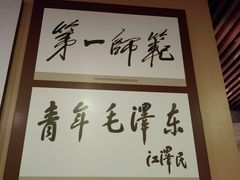 第一師範
青年毛澤东
江泽民